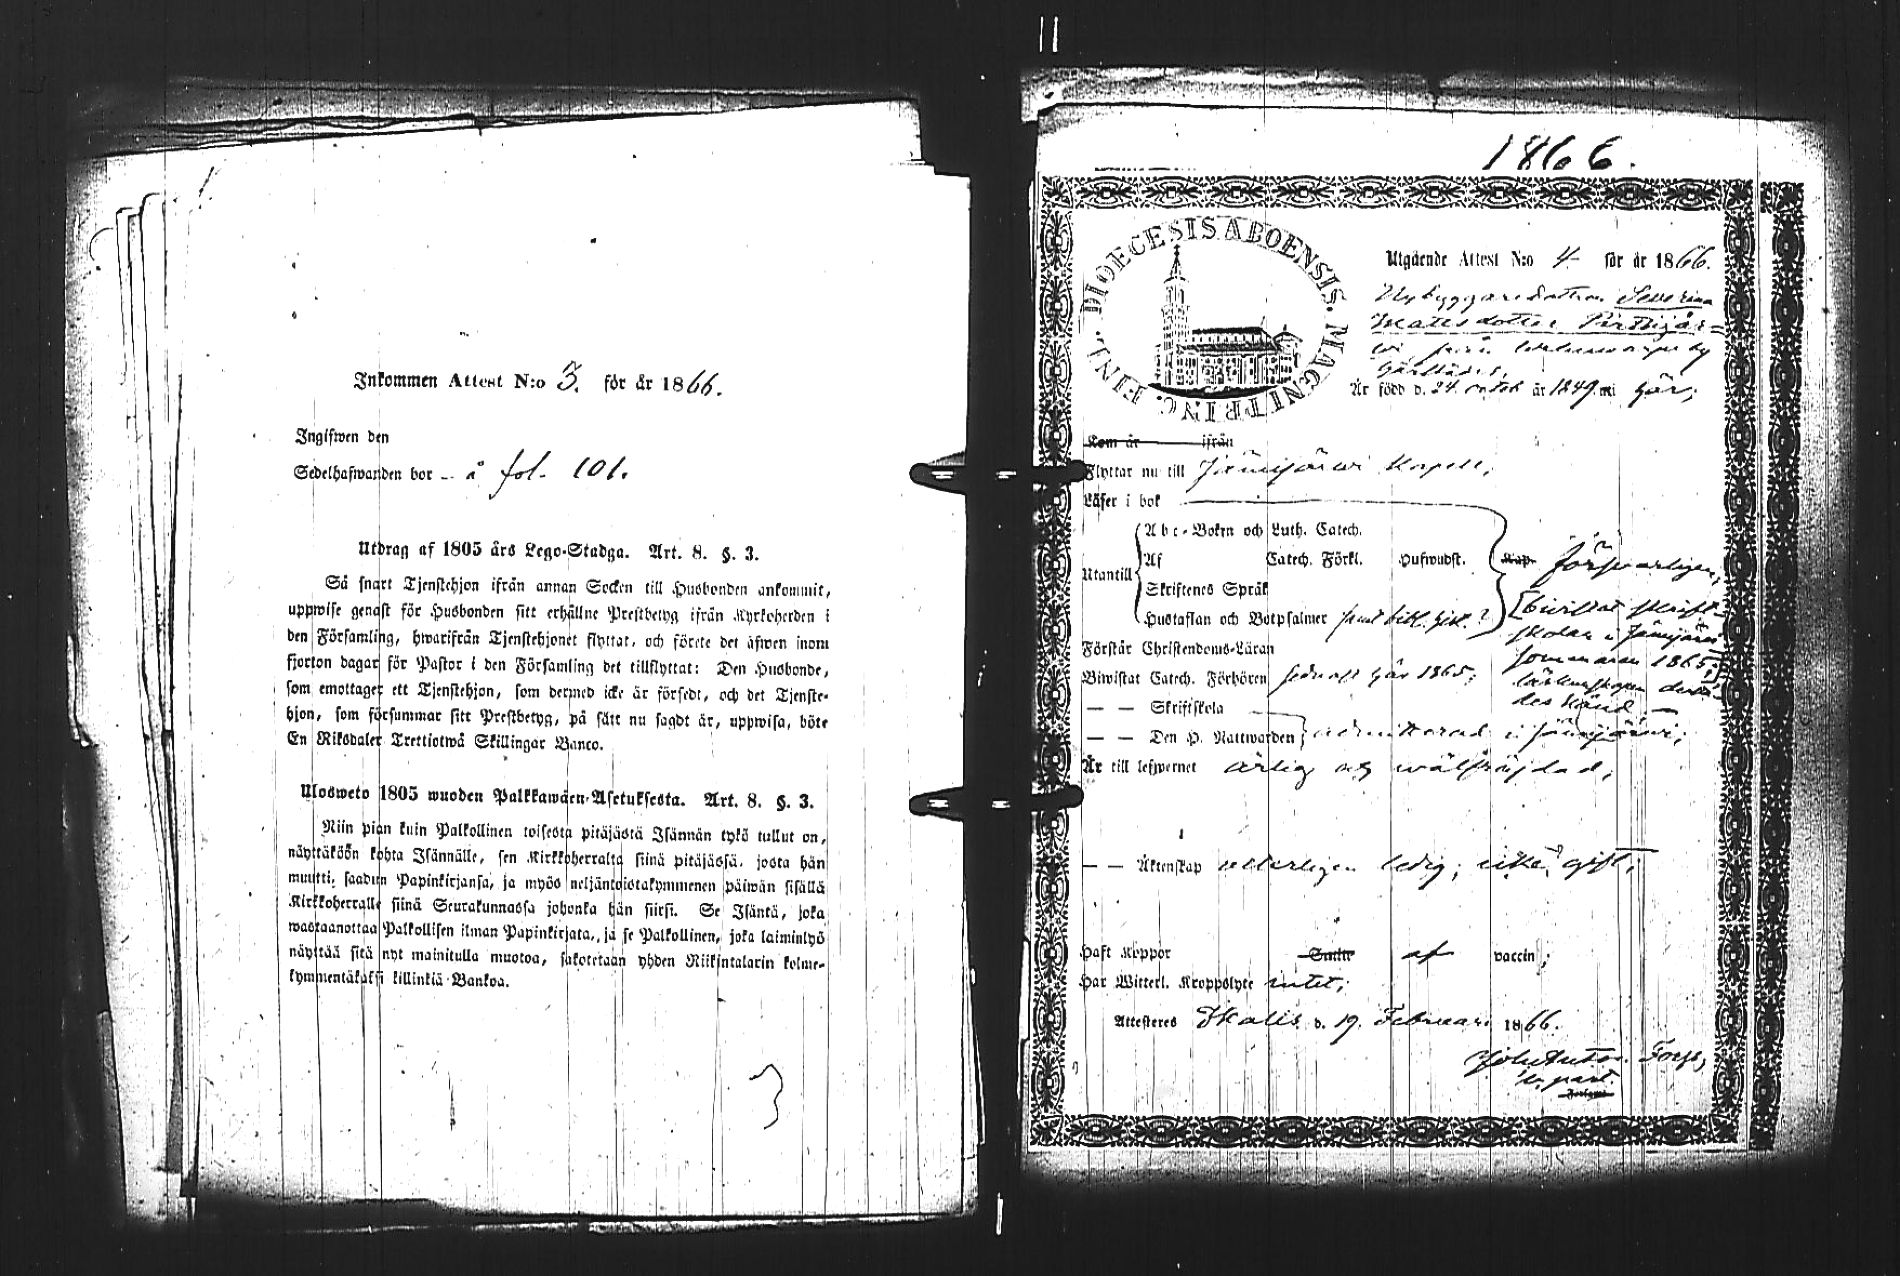 Inkommen Attest N:o 3. för år 1866.
Ingifwen den
Sedelhafwanden bor — å fol. 101.
Utdrag af 1805 års Lego-Stadga. Art. 8. §. 3.
Så snart Tjenstehjon ifrån annan Socken till Husbonden ankommit,
uppwise genast för Husbonden sitt erhållne Prestbetyg ifrån Kyrkoherden i
den Församling, hwarifrån Tjenstehjonet flyttat, och förete det äfwen inom
fjorton dagar för Pastor i den Församling det tillflyttat: Den Husbonde,
som emottager ett Tjenstehjon, som dermed icke är försedt, och det Tjenste-
hjon, som försummar sitt Prestbetyg, på sätt nu sagdt är, uppwisa, böte
En Riksdaler Trettiotwå Skillingar Banco.
Ulosweto 1805 wuoden Palkkawäen-Asetuksesta. Art. 8. §. 3.
Niin pian kuin Palkollinen toisesta pitäjästä Isännän tykö tullut on,
näyttäköön kohta Isännälle, sen Kirkkoherralta siinä pitäjässä, josta hän
muutti, saadun Papinkirjansa, ja myös neljäntoistakymmenen päiwän sisällä
Kirkkoherralle siinä Seurakunnassa johonka hän siirsi. Se Isäntä, joka
wastaanottaa Palkollisen ilman Papinkirjata, ja se Palkollinen, joka laiminlyö
näyttää sitä nyt mainitulla muotoa, sakotetaan yhden Riikintalarin kolme-
kymmentäkaksi killinkiä Bankoa.
1866.
DIOECESIS ABOENSIS. MAGNI PRINC. FINL.
Utgående Attest N:o 4. för år 1866.
Nybyggaredottren Severina
Matts dotter
från by
Är född d. 24. octob. år 1849. här;
Kom år ifrån
Flyttar nu till Jämijärwi Kapell;
Läser i bok
Abc-Boken och Luth. Catech.
Utantill Af Catech. Förkl. Hufwudst. Kap. försvarligen;
Skriftenes Språk [bivistat skrift-
Hustaflan och Botpsalmer samt bibl. hist. skolan i Jämijärwi
Förstår Christendoms-Läran sommaren 1865;
Biwistat Catech. Förhören sednast här 1865;
— — Skriftskola des känd —
— — Den H. Nattwarden admitterad i Jämijärwi;
Är till lefwernet ärlig och wälfräjdad;
— — Äktenskap veterligen ledig; icke gift;
Haft Koppor Smitte af vaccin;
Har Witterl. Kroppslyte intet;
Attesteras Ikalis d. 19. Februari 1866.